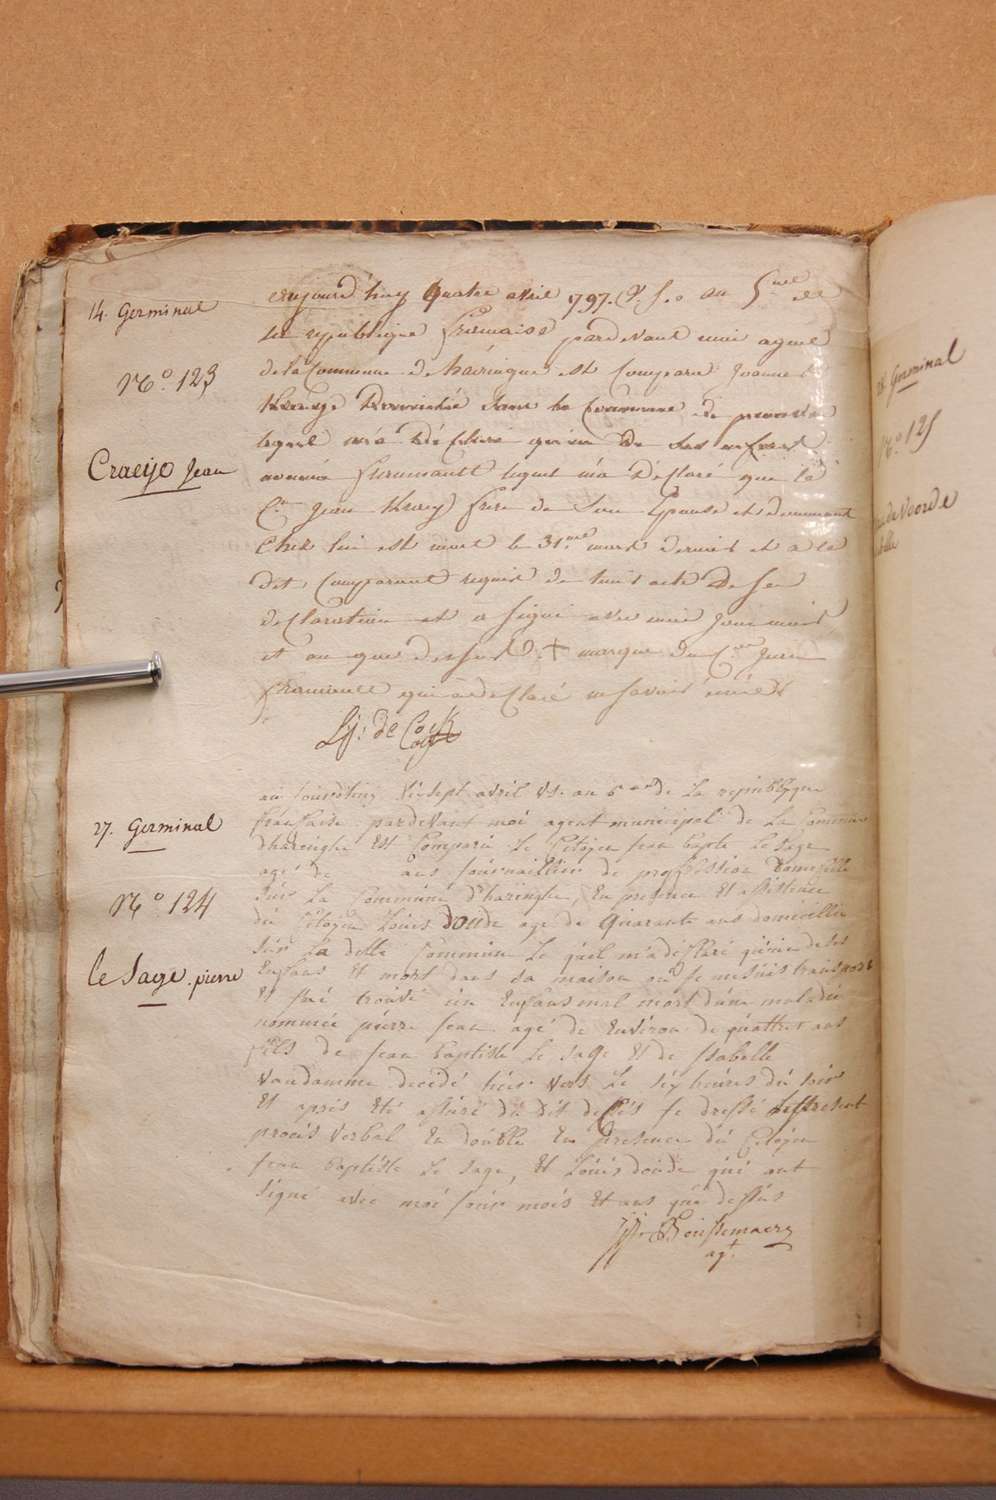 14. Germinal
No. 123
Craeye Jean
aujourd'huy quatre avril 1797. v. s. au 5me de
la republique francaise pardevant moi agent
de la Commune de haringue est Comparu
domicilié dans la Commune de
lequel m'a déclaré qu'un de ses enfans
lequel m'a declaré que le
Cn Jean Kraey frere de son Epouse et demeurant
chez lui est mort le 31.me mars dernier et a le
dit Comparant requis de lui acte de sa
declaration et a signé avec moi jour mois
et an que dessus + marque du Cen Jean
qui a declaré ne savoir
L.J. de Cock
27. Germinal
No. 124
le Sage. pierre
au jourdhuy disept avril vs. an 5 me de La republique
francaise pardevant moi agent municipal de La Commune
dharenghe Est Comparu Le Citoyen jean bapte Le Sage
agé de ans journaillier de proffession domicillé
sur La Commune d'haringhe, En presence Et assistence
du Citoyen Louis doude age de quarante ans domicillié
sur La ditte Commune Le quel m'a déclaré qu'un de ses
Enfans Et mort dans sa maison ou je me suis transporté
Et jai trouvé un Enfans mal mort d'une maladie
nommée pierre jean agé de Environ de quattres ans
fils de jean baptiste Le Sage Et de Isabelle
vandamme decedé hier vers Le six heures du soir
Et apres Eté assuré du dit deces je dressé Le present
procés verbal En double En presence du Citoyen
jean baptiste Le Sage, Et Louis doude qui ont
signé avec moi jour mois Et ans que dessus
agt.
28. Germinal
No. 125
de Voorde